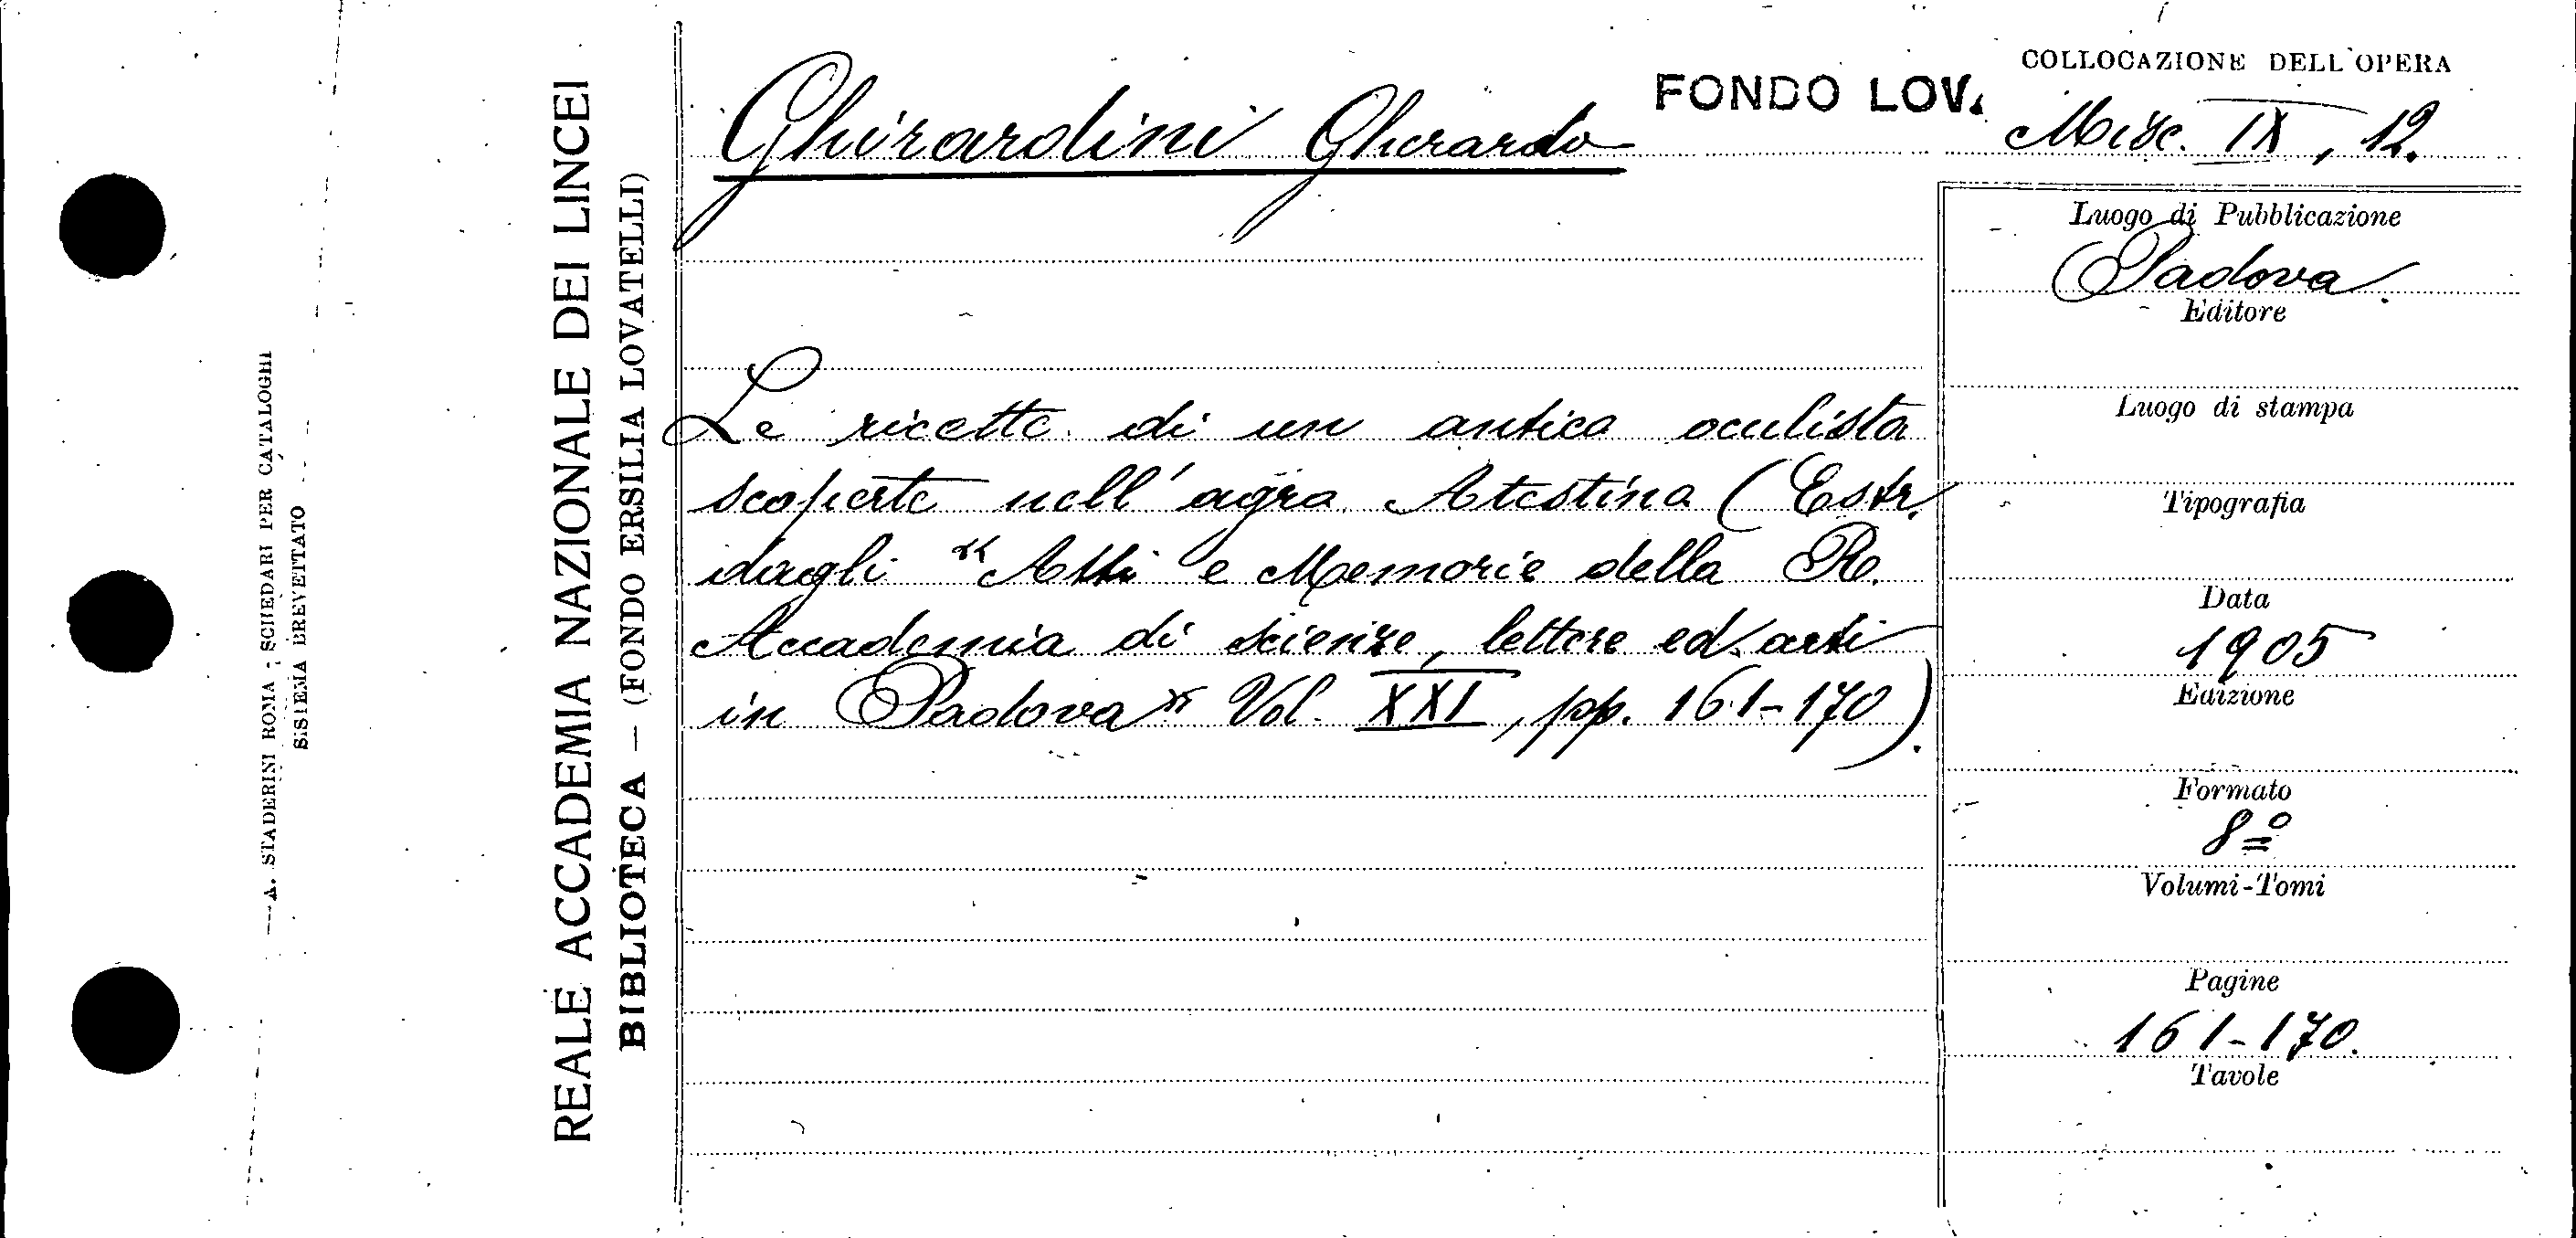 A. STADERINI ROMA - SCHEDARI PER CATALOGHI
SISTEMA BREVETTATO
REALE ACCADEMIA NAZIONALE DEI LINCEI
BIBLIOTECA — (FONDO ERSILIA LOVATELLI)
Ghirardini Gherardo
FONDO LOV.
Le ricette di un antico oculista
scoperte nell' agro Atestino (Estr.
dagli "Atti e Memorie della R.
Accademia di scienze, lettere ed arti
in Padova" Vol. XXI, pp. 161-170).
COLLOCAZIONE DELL'OPERA
Misc. IX, 12.
Luogo di Pubblicazione
Padova.
Editore
Luogo di stampa
Tipografia
Data
1905
Edizione
Formato
8º
Volumi-Tomi
Pagine
161-170.
Tavole